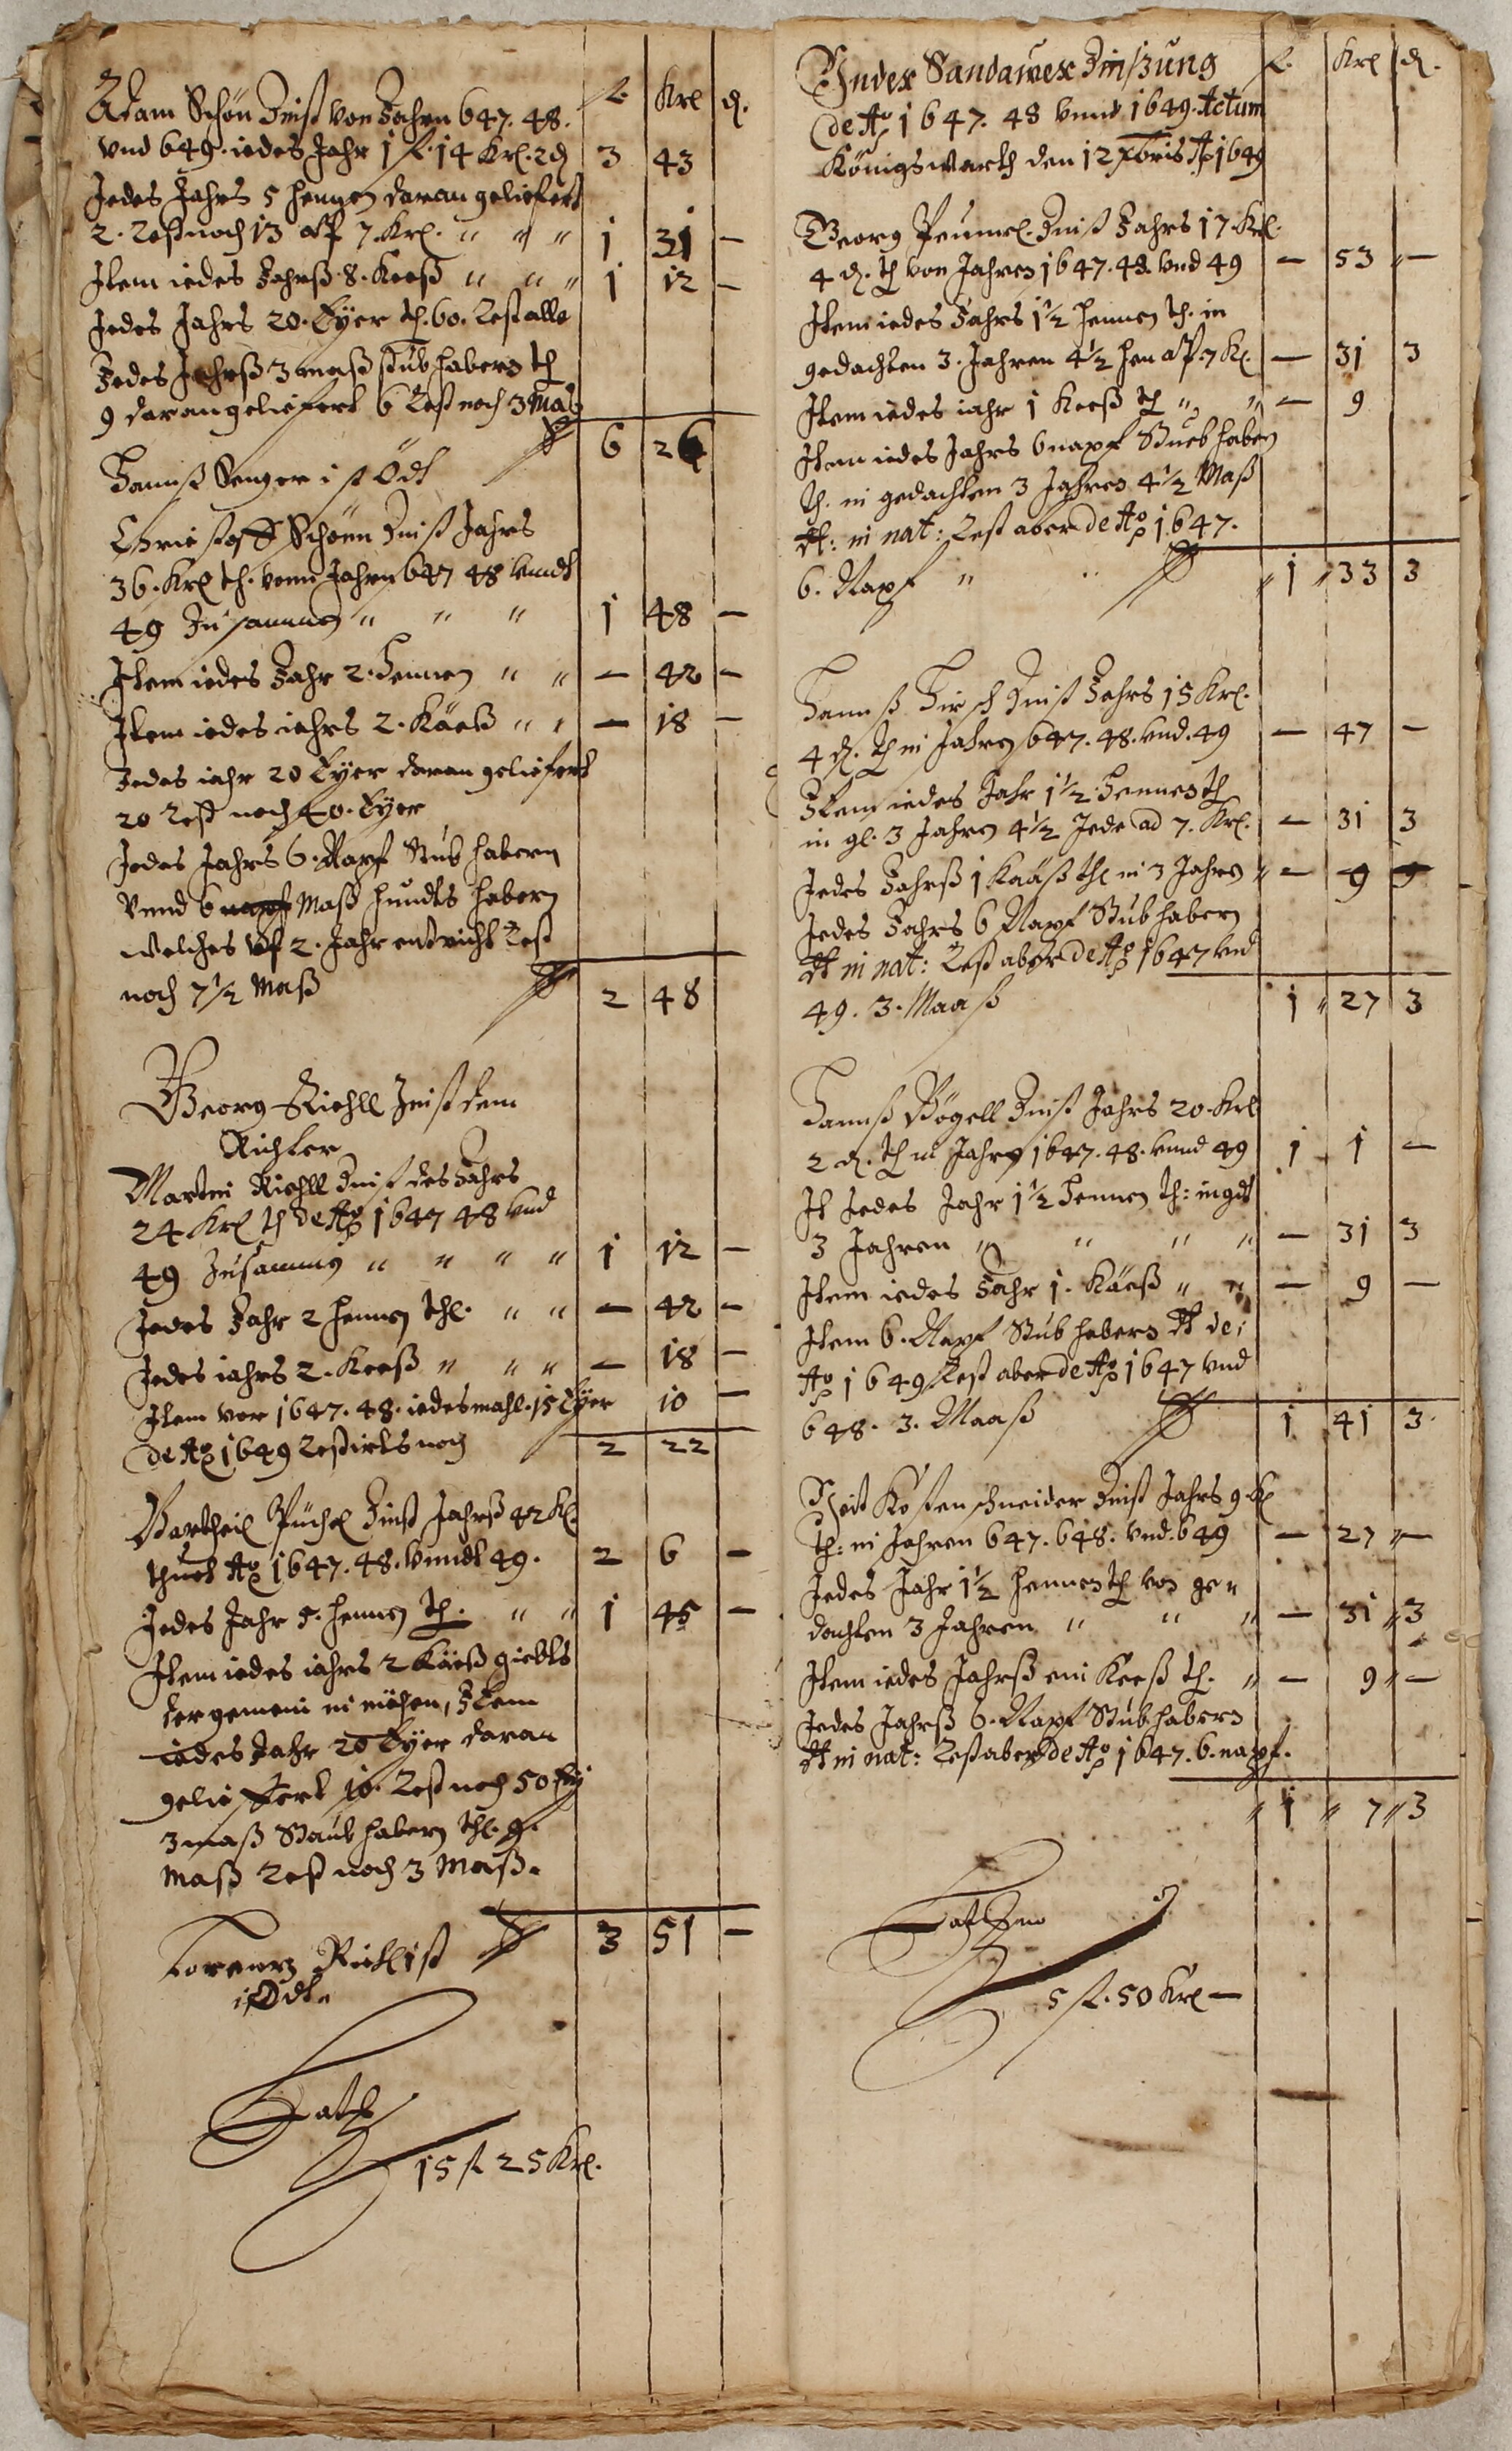 fl. Krl. d.
Adam Schön Zinst von Jahren 647. 48.
vnd 649. iedes Jahr 1 fl. 14 Krl. 2 d 3 43
Jedes Jahrs 5 hennen daran geliefert
2. Rest noch 13 auf 7. Krl. " " " 1 31 –
Item iedes Jahrß 8. Keeß " " " 1 12 –
Jedes Jahrs 20. Eÿer th. 60. Rest alle
Jedes Jahrß 3 maß stub habern th
9 daran geliefert 6 Rest noch 3 Maß
6 26
Hannß Senger ist Ödt
Christoff Schönn Zinst Jahrs
36. Krl th. vonn Jahren 647 48 vnndt
49 Zusammen " " " 1 48 –
Item iedes Jahr 2. Hennen " " – 42 –
Item iedes iahrs 2. Käeß " " – 18 –
Jedes iahr 20 Eÿer daran geliefert
20 Rest noch 40. Eÿer
Jedes Jahrs 6. Napf Stub habern
vnnd 6 napf Maß hundts habern
welches vf 2. Jahr entricht Rest
noch 7 1/2 Maß 2 48
Georg Riehll Zinst dem
Richter
Martin Riehll Zinst des Jahrs
24 Krl th de Ao 1647 48 vnd
49 Zusammen " " " " 1 12 –
Jedes Jahr 2 hennen thl. " " – 42 –
Jedes iahrs 2. Keeß " " " – 18 –
Item vor 1647. 48. iedesmahl. 15 Eÿer 10 –
de Ao 1649 Restirts noch 2 22
Bartheil Püchel Zinst Jahrß 42 Kl.
thuet Ao 1647. 48. vnndt 49. 2 6 –
Jedes Jahr 5. hennen th. " " 1 45 –
Item iedes iahrs 2 Käeß giebts
der gemein Item
iedes Jahr 20 Eÿer daran
geliefert 10. Rest noch 50 Eÿ
3 maß Staub habern thl. 9.
Maß Rest noch 3 Maß.
3 51 –
Lorenz Riehl ist
Ödt.
Lath
15 fl 25 Krl.
Index Sandawer Zinßung fl. Krl d.
de Ao 1647. 48 vnnd 1649. Actum
Königswarth den 12 Xbris Ao 1649
Georg Peuml. Zinst Jahrs 17. Krl.
4 d. th von Jahren 1647. 48. vnd 49 – 53 –
Item iedes Jahrs 1 1/2 hennen th. in
gedachten 3. Jahren 4 1/2 hen auf 7 Kl. – 31 3
Item iedes iahr 1 Keeß th " " – 9
Item iedes Jahrs 6 napf Stueb habern
th. in gedachten 3 Jahren 4 1/2 Maß
dt: in nat: Rest aber de Ao 1647.
6. Napf " " 1 " 33 3
Hannß Hirsch Zinst Jahrs 15 Krl.
4 d. th in Jahren 647. 48. vnd. 49 – 47 –
Item iedes Jahr 1 1/2 Hennen th
in gl. 3 Jahren 4 1/2 Jede ad 7. Krl. – 31 3
Jedes Jahrß 1 Kääß thl in 3 Jahren " – 9 9
Jedes Jahrs 6 Napf Stub habern
dt in nat: Rest aber de Ao 1647 vnd
49. 3. Maaß 1 " 27 3
Hannß Vögell Zinst Jahrs 20. Krl
2 d. th in Jahren 1647. 48. vnnd 49 1 1 –
It Jedes Jahr 1 1/2 Hennen th: in gdt
3 Jahren " " " " – 31 3
Item iedes Jahr 1. Käeß " " – 9 –
Item 6. Napf Stub habern dt de
Ao 1649 Rest aber de Ao 1647 vnd
648. 3. Maaß 1 41 3
Veit Kostenschneider Zinst Jahrs 9. Kl
th: in Jahren 647. 648. vnd. 649 – 27 " –
Jedes Jahr 1 1/2 hennen th von ge "
dachten 3 Jahren " " " – 31 " 3
Item iedes Jahrß ein Keeß th. " – 9 " –
Jedes Jahrß 6. Napf Stub habern
dt in nat: Rest aber de Ao 1647. 6. napf.
" 1 " 7 " 3
5 fl. 50 Krl –